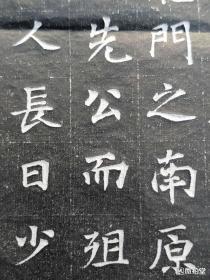 門之南原
先公而殂
人長日少